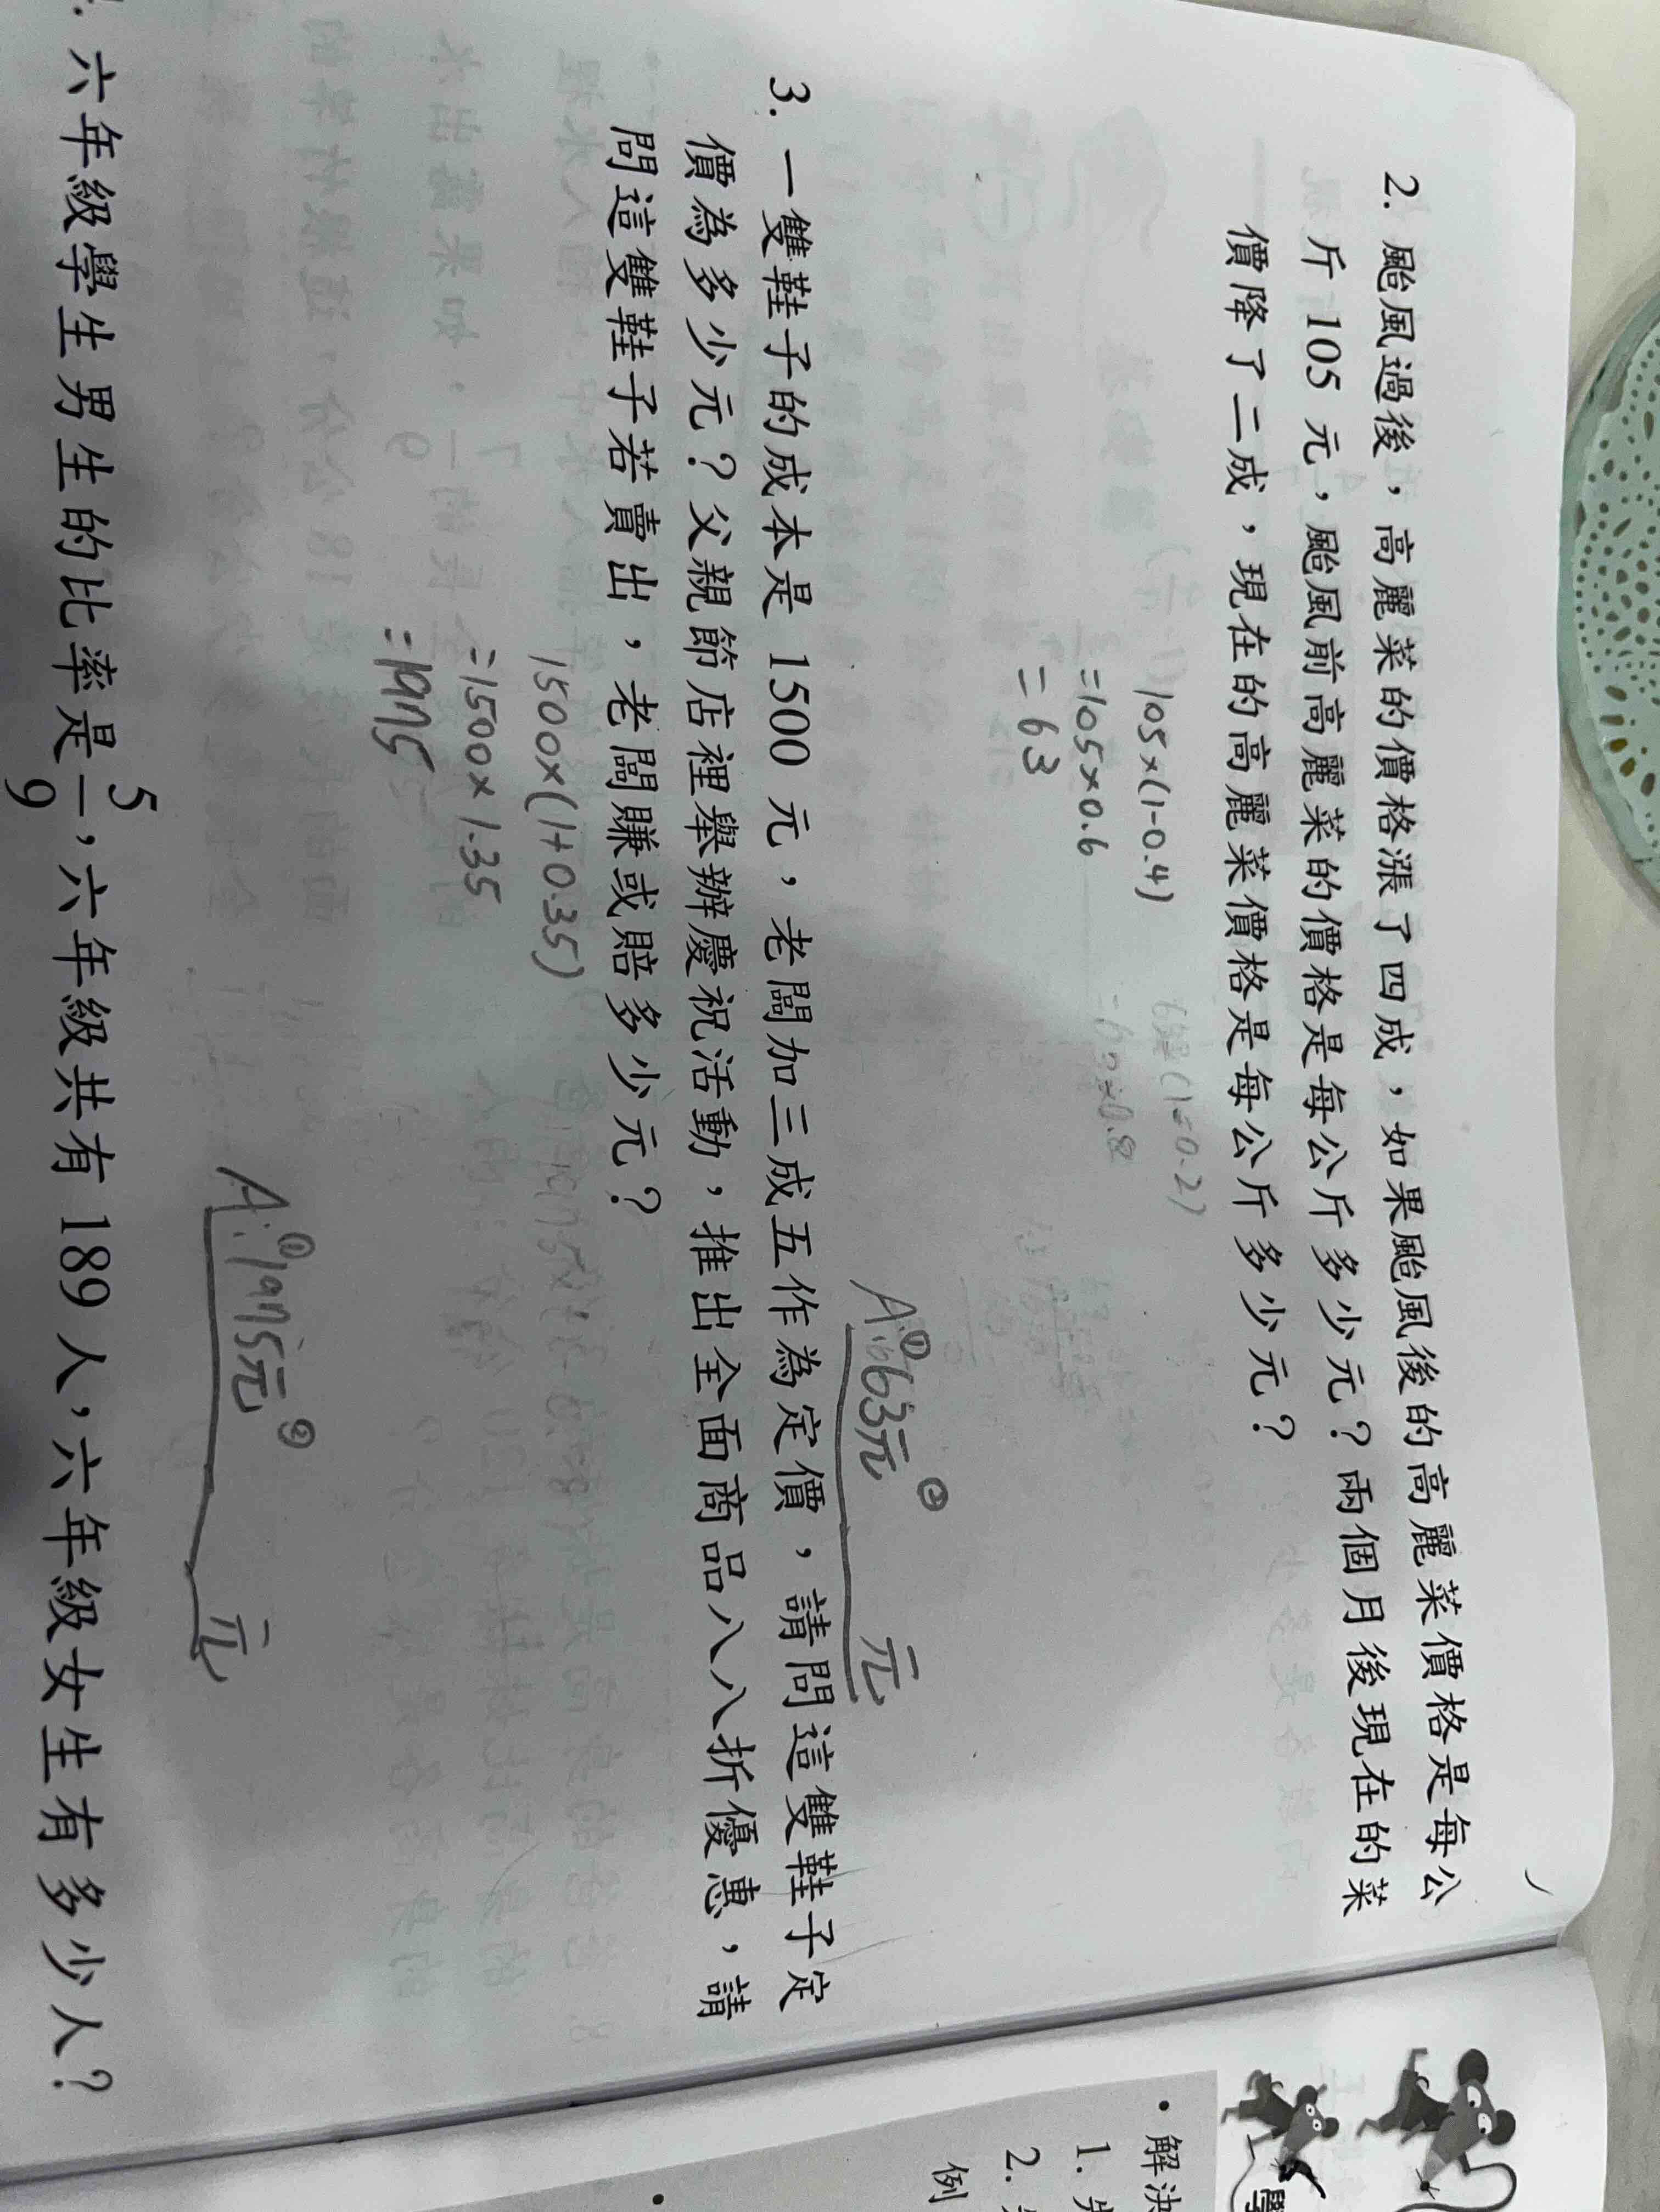 2. 颱風過後，高麗菜的價格漲了四成，如果颱風後的高麗菜價格是每公
斤 105 元，颱風前高麗菜的價格是每公斤多少元？兩個月後現在的菜
價降了二成，現在的高麗菜價格是每公斤多少元？
105×(1-0.4)
=105×0.6
=63
A:①63元 ② 元
3. 一雙鞋子的成本是 1500 元，老闆加三成五作為定價，請問這雙鞋子定
價為多少元？父親節店裡舉辦慶祝活動，推出全面商品八八折優惠，請
問這雙鞋子若賣出，老闆賺或賠多少元？
1500×(1+0.35)
=1500×1.35
=1975
A:①1975元 ② 元
六年級學生男生的比率是 5/9，六年級共有 189 人，六年級女生有多少人？
• 解決
1.
2.
例